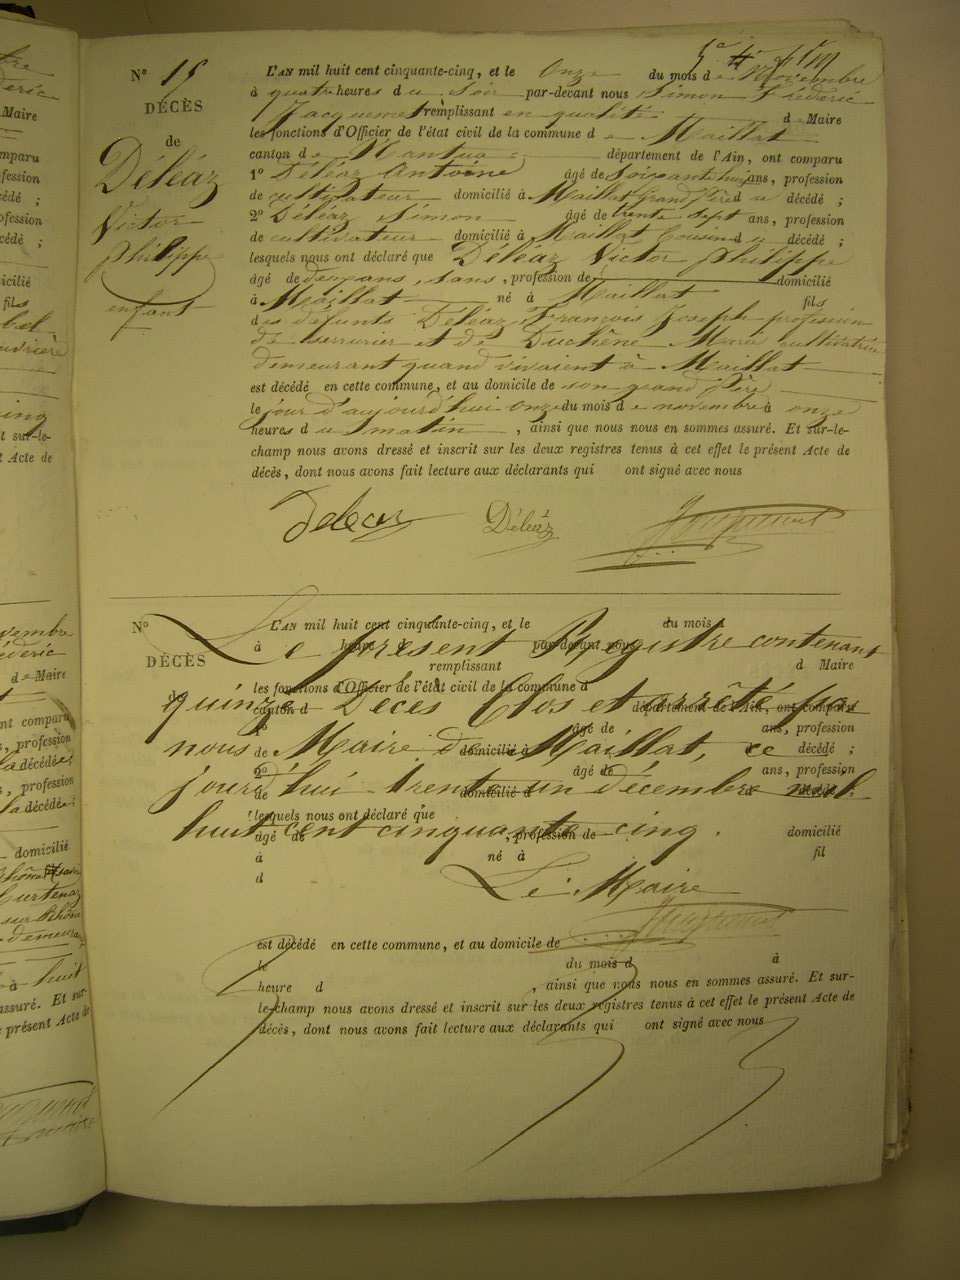 N° 15
DÉCÈS
de
Déléaz
Victor
philippe
enfant
L'AN mil huit cent cinquante-cinq, et le Onze du mois de Novembre
à quatre heures du Soir par-devant nous Simon Fréderic
Jacquemet remplissant en qualité de Maire
les fonctions d'Officier de l'état civil de la commune de Maillat
canton de Nantua département de l'Ain, ont comparu
1° Déléaz Antoine âgé de Soixante huit ans, profession
de cultivateur domicilié à Maillat Grand Père du décédé ;
2° Déléaz Simon âgé de trente sept ans, profession
de cultivateur domicilié à Maillat Cousin du décédé ;
lesquels nous ont déclaré que Déléaz Victor philippe
âgé de deux ans, sans, profession de domicilié
à Maillat né à Maillat fils
des défunts Déléaz François Joseph profession
de serrurier et de Duchêne Marie cultivatrice
demeurant quand vivaient à Maillat
est décédé en cette commune, et au domicile de son grand Père
le jour d'aujourd'hui onze du mois de novembre à onze
heures du matin, ainsi que nous nous en sommes assuré. Et sur-le-
champ nous avons dressé et inscrit sur les deux registres tenus à cet effet le présent Acte de
décès, dont nous avons fait lecture aux déclarants qui ont signé avec nous
Deleaz Déléaz Jacquemet
N°
DÉCÈS
de
L'AN mil huit cent cinquante-cinq, et le du mois
à heure d par-devant nous
Le présent Registre contenant
remplissant d Maire
les fonctions d'Officier de l'état civil de la commune d
quinze Décès Clos et arrêté par
canton d département de l'Ain, ont comparu
1° âgé de ans, profession
nous Maire de Maillat, ce
de domicilié à décédé ;
2° âgé de ans, profession
jourd'hui trente un décembre mil
de domicilié à d décédé ;
lesquels nous ont déclaré que
huit cent cinquante cinq.
âgé de , profession de domicilié
à né à fil
d
Le Maire
Jacquemet
est décédé en cette commune, et au domicile de
le du mois d à
heure d , ainsi que nous nous en sommes assuré. Et sur-
le-champ nous avons dressé et inscrit sur les deux registres tenus à cet effet le présent Acte de
décès, dont nous avons fait lecture aux déclarants qui ont signé avec nous